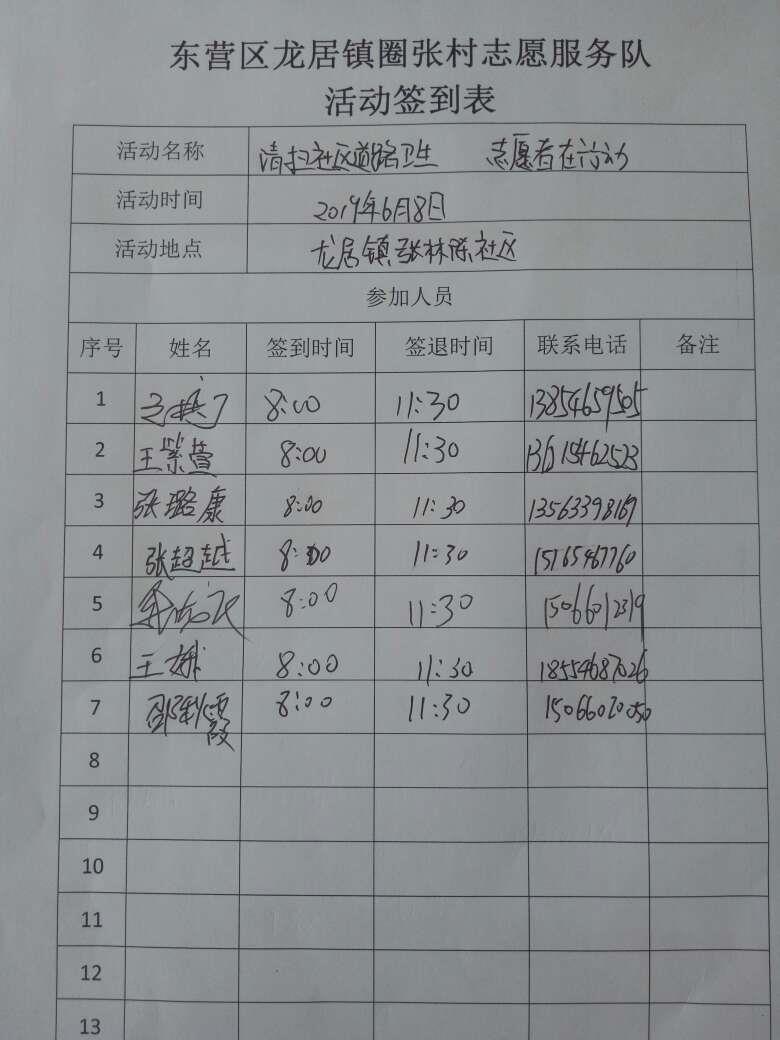 东营区龙居镇圈张村志愿服务队
活动签到表
活动名称 清扫社区道路卫生 志愿者在行动
活动时间 2019年6月8日
活动地点 龙居镇张林陈社区
参加人员
序号 姓名 签到时间 签退时间 联系电话 备注
1 8:00 11:30 13854659505
2 王紫萱 8:00 11:30 13615462523
3 张璐康 8:00 11:30 13563398169
4 张超越 8:00 11:30 15165467760
5 8:00 11:30 15066012319
6 王娜 8:00 11:30 18554687026
7 邵秋霞 8:00 11:30 15066020050
8
9
10
11
12
13